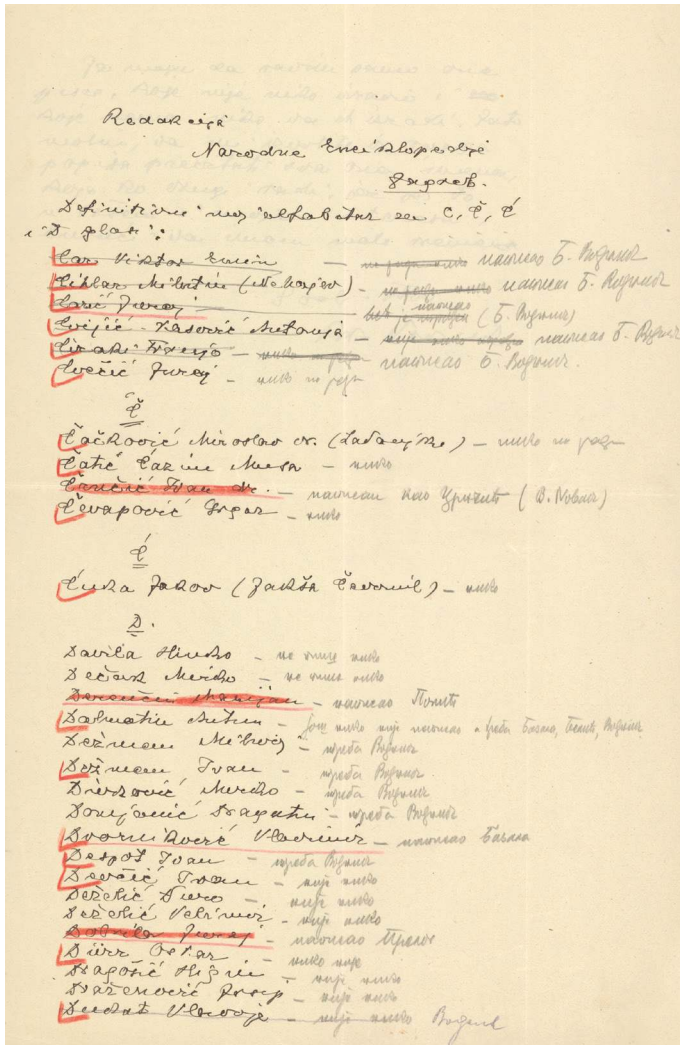 Redakcija
Narodne Enciklopedije
Zagreb.
Definitivni alfabetar za C, Č, Ć
i D glas:
Car Viktor Emin — написао Б. Водник
Cihlar Milutin (Nehajev) — написао Б. Водник
Carić Juraj — написао (Б. Водник)
Cvijić-Kasović Antonija — није нико написао Б. Водник
Ciraki Franjo — нико не ради написао Б. Водник.
Cvečić Juraj — нико не ради
Č
Čačković Miroslav dr. (Ladanjski) — нико не ради
Čatić Ćazim Musa — нико
Črnčić Ivan dr. — написан као Црнчић (В. Новак)
Čevapović Grgur — нико
Ć
Ćuka Jakov (Jakša Čedomil) — нико
D.
Davila Hinko — не пише нико
Dečak Mirko — не пише нико
Derenčin Marijan — написао Политe
Dalmatin Antun — још нико није написао а треба Водник
Dežman Milivoj — треба Водник
Dežman Ivan — треба Водник.
Divković Mirko — треба Водник
Domjanić Dragutin — треба Водник
Dvorniković Vladimir — написао Базала
Despot Ivan — треба Водник
Devčić Ivan — није нико
Deželić Đuro — није нико
Deželić Velimir — није нико
Dobrila Juraj — написао
Dürr Oskar — нико није
Dragošić Higin — није нико
Draženović Josip — није нико
Dukat Vladoje — није нико Водник